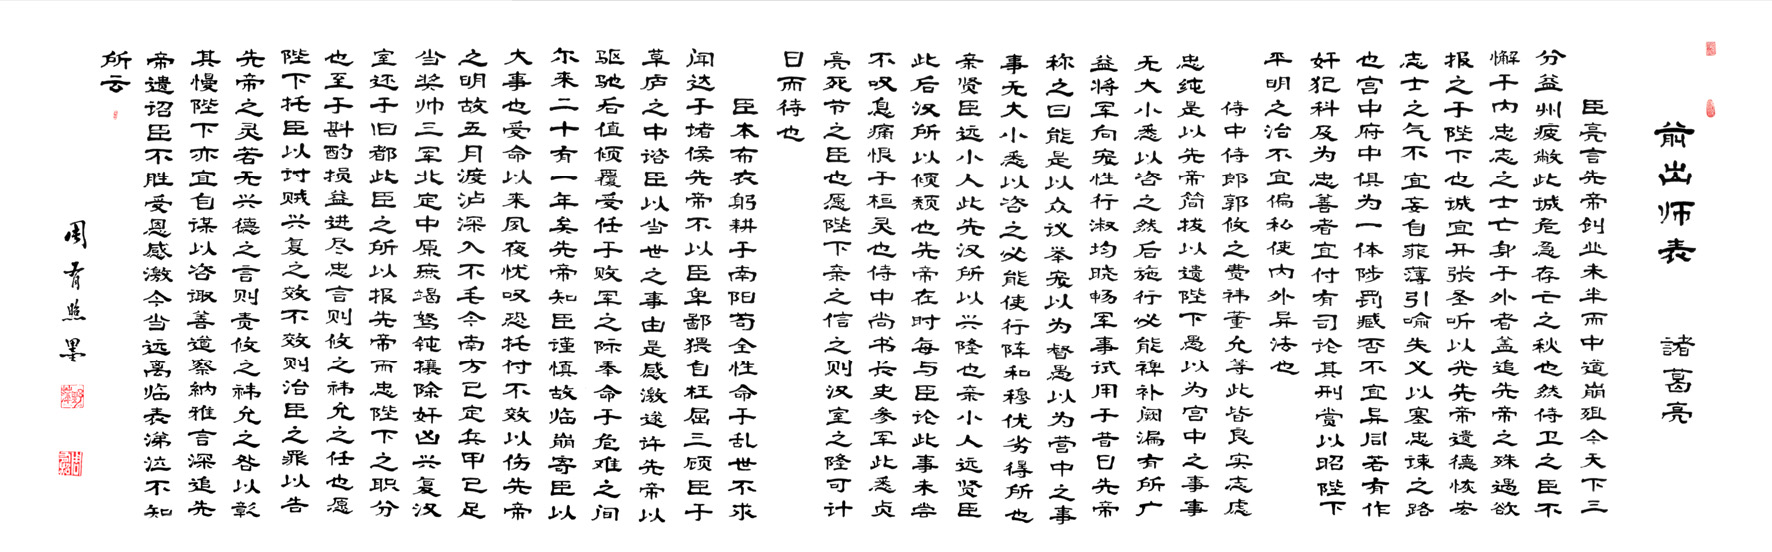 前出师表 諸葛亮
臣亮言先帝创业未半而中道崩殂今天下三
分益州疲敝此诚危急存亡之秋也然侍卫之臣不
懈于内忠志之士亡身于外者盖追先帝之殊遇欲
报之于陛下也诚宜开张圣听以光先帝遗德恢宏
志士之气不宜妄自菲薄引喻失义以塞忠谏之路
也宫中府中俱为一体陟罚臧否不宜异同若有作
奸犯科及为忠善者宜付有司论其刑赏以昭陛下
平明之治不宜偏私使内外异法也
侍中侍郎郭攸之费祎董允等此皆良实志虑
忠纯是以先帝简拔以遗陛下愚以为宫中之事事
无大小悉以咨之然后施行必能裨补阙漏有所广
益将军向宠性行淑均晓畅军事试用于昔日先帝
称之曰能是以众议举宠以为督愚以为营中之事
事无大小悉以咨之必能使行阵和穆优劣得所也
亲贤臣远小人此先汉所以兴隆也亲小人远贤臣
此后汉所以倾颓也先帝在时每与臣论此事未尝
不叹息痛恨于桓灵也侍中尚书长史参军此悉贞
亮死节之臣也愿陛下亲之信之则汉室之隆可计
日而待也
臣本布衣躬耕于南阳苟全性命于乱世不求
闻达于诸侯先帝不以臣卑鄙猥自枉屈三顾臣于
草庐之中谘臣以当世之事由是感激遂许先帝以
驱驰后值倾覆受任于败军之际奉命于危难之间
尔来二十有一年矣先帝知臣谨慎故临崩寄臣以
大事也受命以来夙夜忧叹恐托付不效以伤先帝
之明故五月渡泸深入不毛今南方已定兵甲已足
当奖帅三军北定中原庶竭驽钝攘除奸凶兴复汉
室还于旧都此臣之所以报先帝而忠陛下之职分
也至于斟酌损益进尽忠言则攸之祎允之任也愿
陛下托臣以讨贼兴复之效不效则治臣之罪以告
先帝之灵若无兴德之言则责攸之祎允之咎以彰
其慢陛下亦宜自谋以咨诹善道察納雅言深追先
帝遗诏臣不胜受恩感激今当远离临表涕泣不知
所云
周 照墨